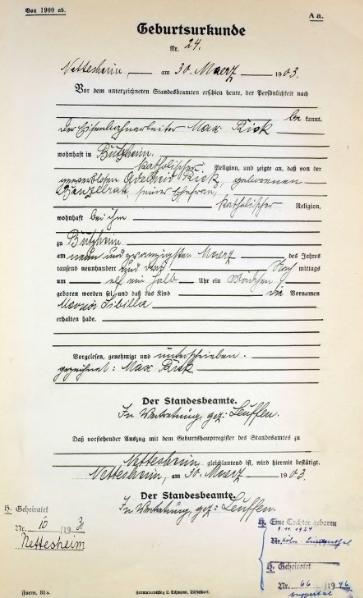 Von 1900 ab.
A a.
Geburtsurkunde
Nr. 24.
Nettesheim, am 30. Maerz 1903.
Vor dem unterzeichneten Standesbeamten erschien heute, der Persönlichkeit nach
be kannt,
der Eisenbahnarbeiter Max
wohnhaft in Bützheim
katholischer Religion, und zeigte an, daß von der
geborenen
seiner Ehefrau,
katholischer Religion,
wohnhaft bei ihm
zu Bützheim
am neun und zwanzigsten Maerz des Jahres
tausend neunhundert und drei Nach mittags
um elf ein halb Uhr ein Mädchen
geboren worden sei und daß das Kind die Vornamen
Sibilla
erhalten habe.
Vorgelesen, genehmigt und unterschrieben.
gezeichnet: Max
Der Standesbeamte.
In Vertretung, gez: Leuffen.
Daß vorstehender Auszug mit dem Geburtshauptregister des Standesamtes zu
Nettesheim gleichlautend ist, wird hiermit bestätigt.
Nettesheim, am 30. Maerz 1903.
Der Standesbeamte.
In Vertretung, gez: Leuffen
H. Geheiratet
Nr. 10/193
Nettesheim
H. Eine Tochter geboren
Nr.
H. Geheiratet
Nr. 66/1946